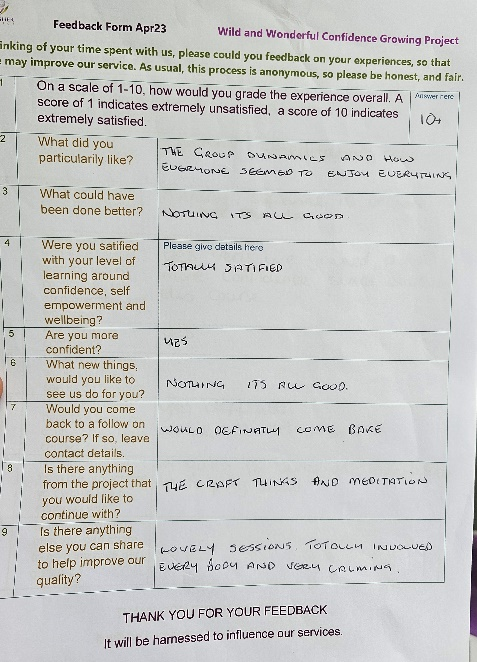 Feedback Form Apr23
Wild and Wonderful Confidence Growing Project
inking of your time spent with us, please could you feedback on your experiences, so that
may improve our service. As usual, this process is anonymous, so please be honest, and fair.
1
On a scale of 1-10, how would you grade the experience overall. A
score of 1 indicates extremely unsatisfied, a score of 10 indicates
extremely satisfied.
Answer here
10+
2
What did you
particularly like?
THE GROUP DYNAMICS AND HOW
EVERYONE SEEMED TO ENJOY EVERYTHING
3
What could have
been done better?
NOTHING ITS ALL GOOD
4
Were you satified
with your level of
learning around
confidence, self
empowerment and
wellbeing?
Please give details here
TOTALLY SATIFIED
5
Are you more
confident?
YES
6
What new things,
would you like to
see us do for you?
NOTHING ITS ALL GOOD.
7
Would you come
back to a follow on
course? If so, leave
contact details.
WOULD DEFINATLY COME BAKE
8
Is there anything
from the project that
you would like to
continue with?
THE CRAFT THINGS AND MEDITATION
9
Is there anything
else you can share
to help improve our
quality?
LOVELY SESSIONS. TOTOLLY INVOLVED
EVERY BODY AND VERY CALMING.
THANK YOU FOR YOUR FEEDBACK
It will be harnessed to influence our services.